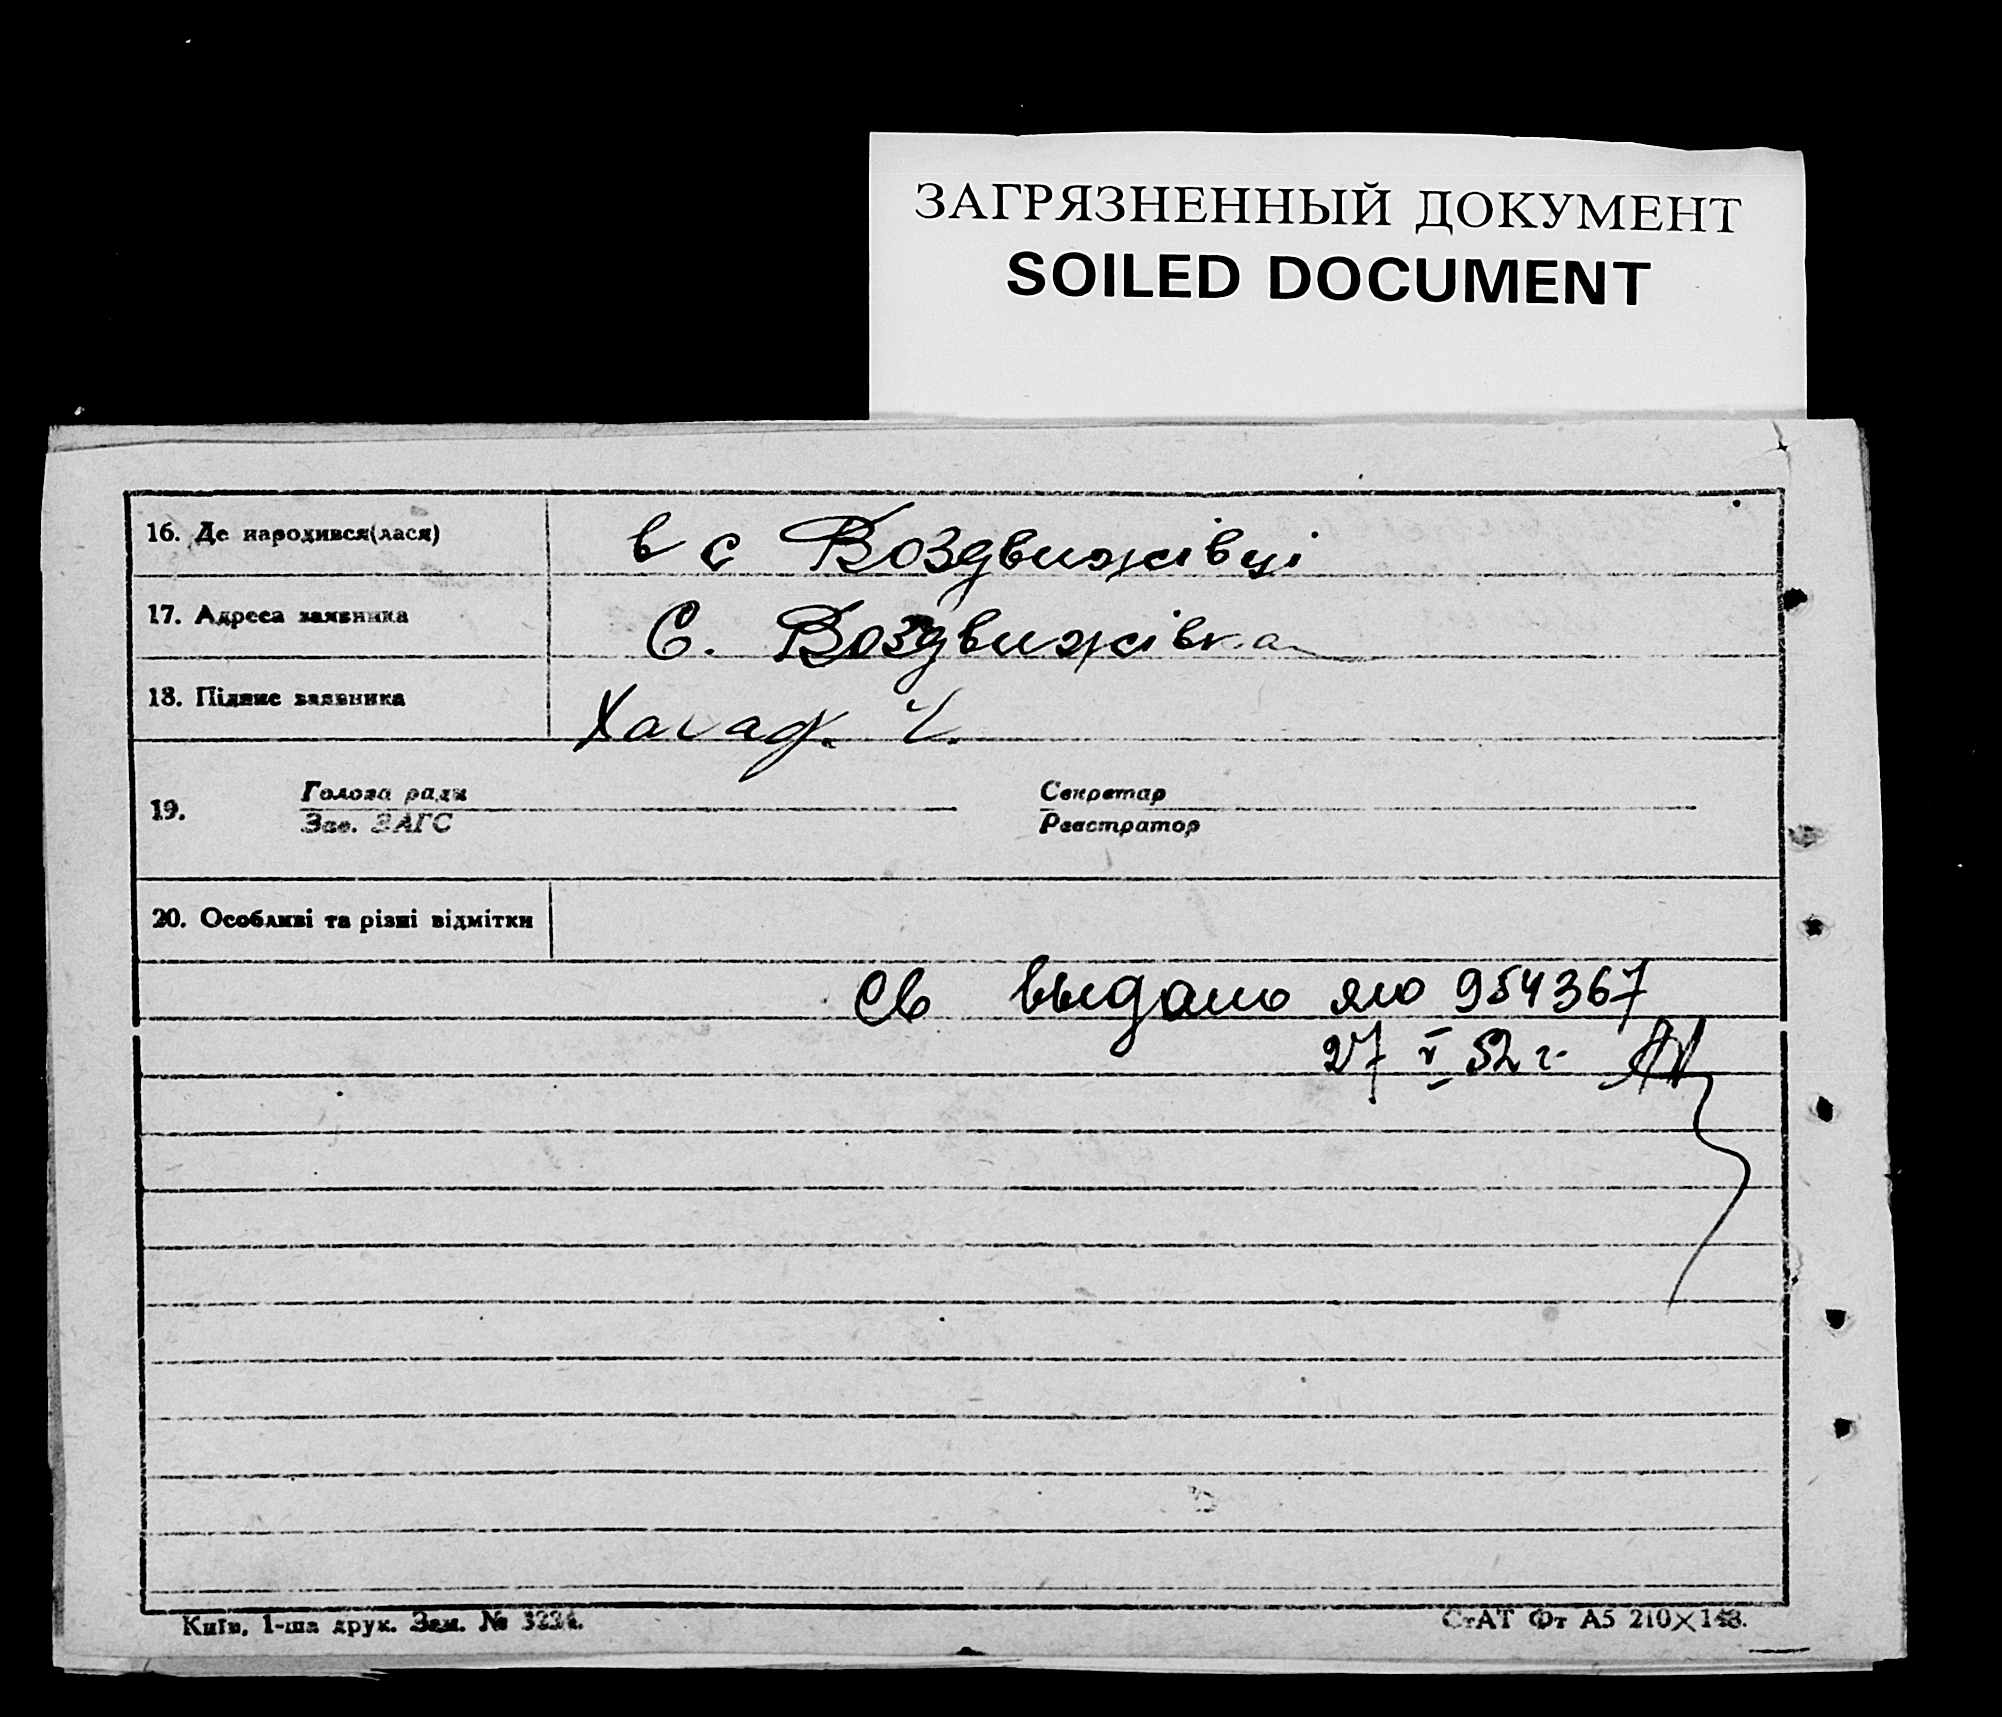 ЗАГРЯЗНЕННЫЙ ДОКУМЕНТ
SOILED DOCUMENT
16. Де народився(лася) в с Воздвижівці
17. Адреса заявника С. Воздвижівка
18. Підпис заявника
19. Голова ради Секретар
Зав. ЗАГС Реєстратор
20. Особливі та різні відмітки
Св выдано яю 954367
27 V 52 г.
Київ, 1-ша друк. Зам. № 3224.
СтАТ Фт А5 210×148.